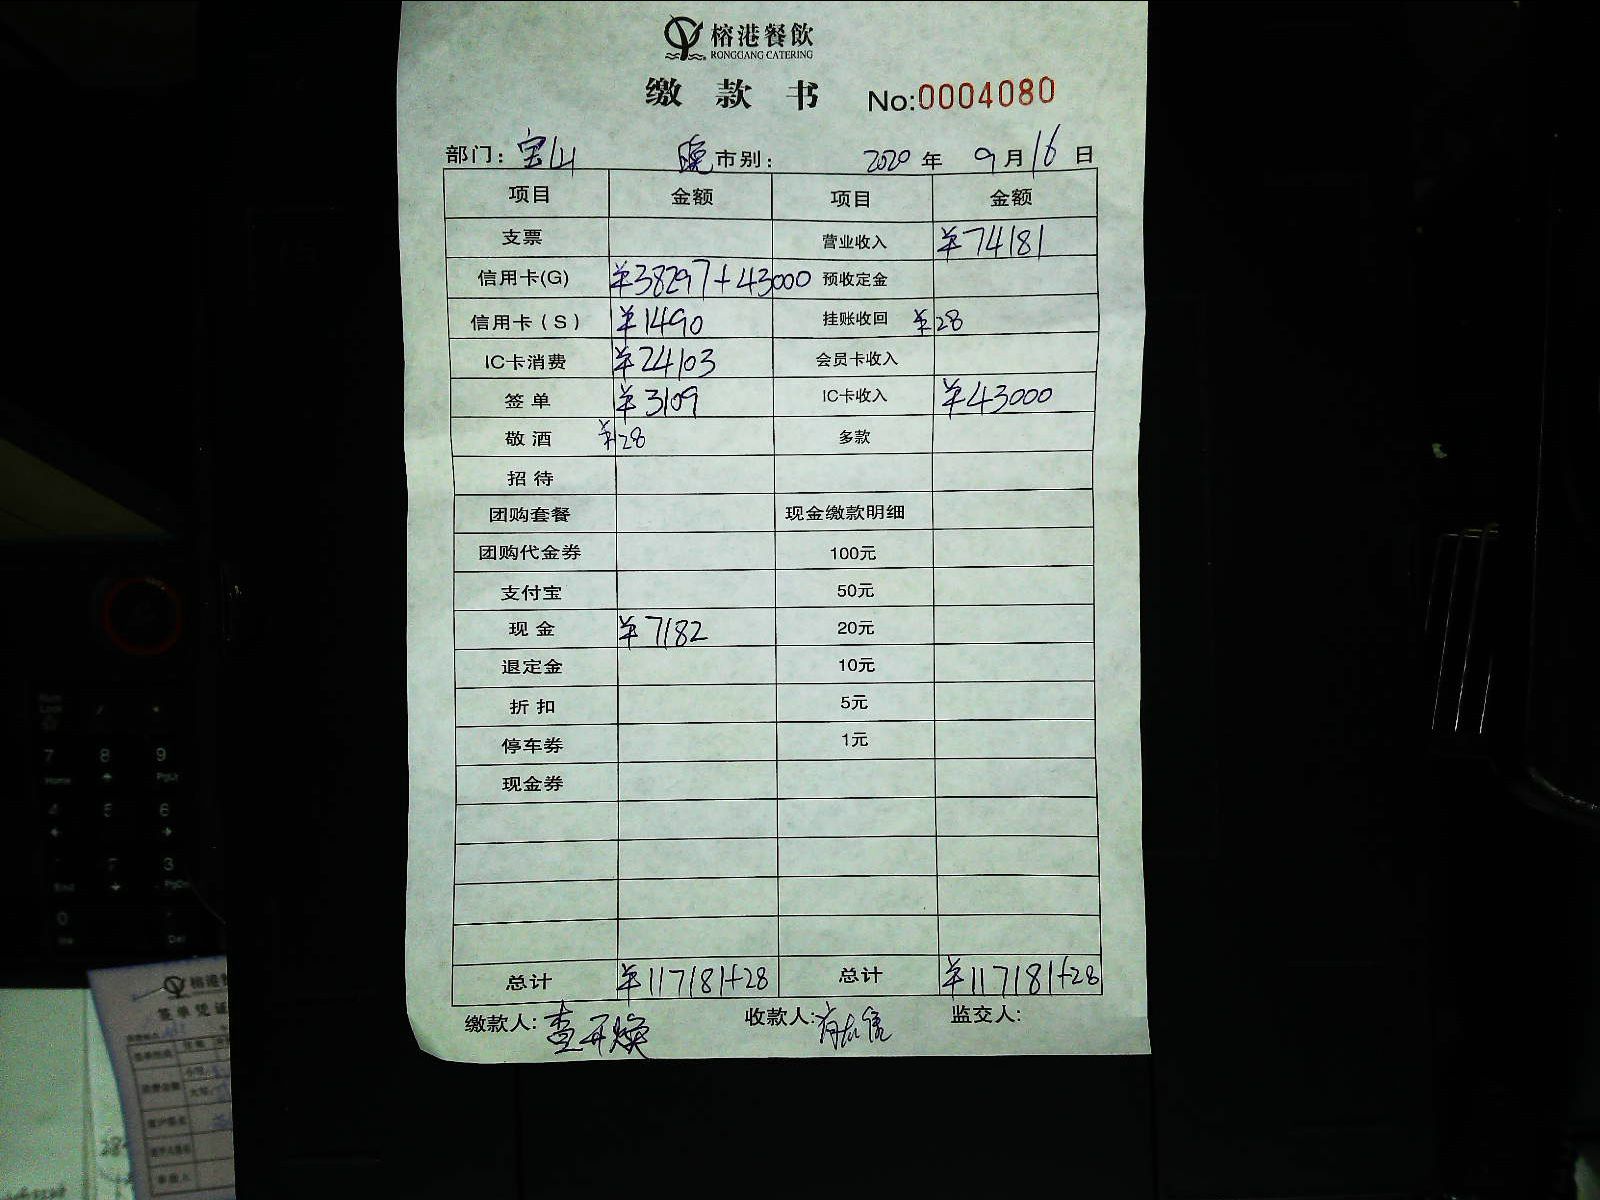 榕港餐飲
RONGGANG CATERING
缴款书 No:0004080
部门: 宝山 晚市别: 2020年 9月16日
项目 金额 项目 金额
支票 营业收入 ¥74181
信用卡(G) ¥38297+43000 预收定金
信用卡(S) ¥1490 挂账收回 ¥28
IC卡消费 ¥24103 会员卡收入
签单 ¥3109 IC卡收入 ¥43000
敬酒 ¥28 多款
招待
团购套餐 现金缴款明细
团购代金券 100元
支付宝 50元
现金 ¥7182 20元
退定金 10元
折扣 5元
停车券 1元
现金券
总计 ¥117181+28 总计 ¥117181+28
缴款人: 查开焕 收款人: 监交人:
7 8 9
Home PgUp
4 5 6
3
End PgDn
0
Ins Del
榕港
签单凭证